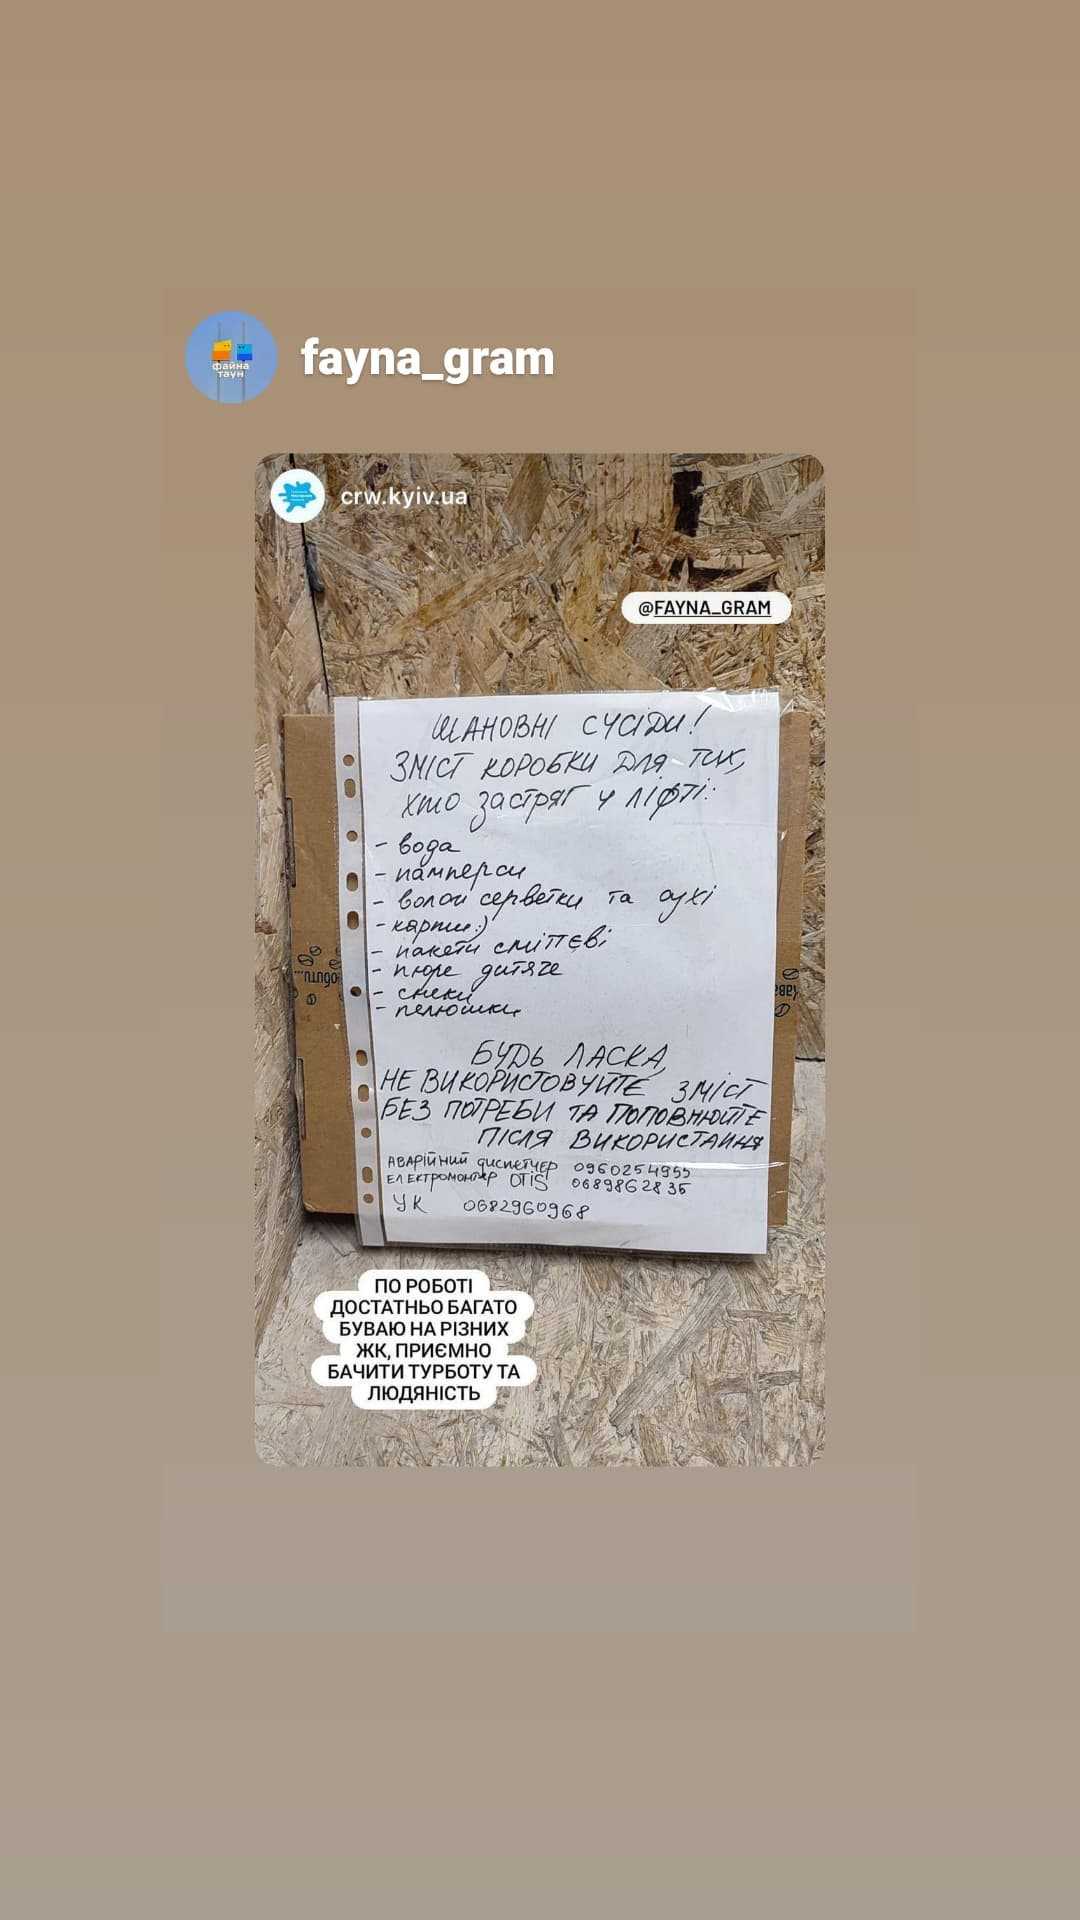 файна
таун
fayna_gram
crw.kyiv.ua
@FAYNA_GRAM
ШАНОВНІ СУСІДИ!
ЗМІСТ КОРОБКИ ДЛЯ ТИХ,
ХТО ЗАСТРЯГ У ЛІФТІ:
- вода
- памперси
- вологі серветки та сухі
- карти:)
- пакети сміттєві
- пюре дитяче
- снеки
- пелюшки
БУДЬ ЛАСКА,
НЕ ВИКОРИСТОВУЙТЕ ЗМІСТ
БЕЗ ПОТРЕБИ ТА ПОПОВНЮЙТЕ
ПІСЛЯ ВИКОРИСТАННЯ
АВАРІЙНИЙ ДИСПЕТЧЕР 0960254955
ЕЛЕКТРОМОНТЕР OTIS 0689862835
УК 0682960968
ПО РОБОТІ
ДОСТАТНЬО БАГАТО
БУВАЮ НА РІЗНИХ
ЖК, ПРИЄМНО
БАЧИТИ ТУРБОТУ ТА
ЛЮДЯНІСТЬ